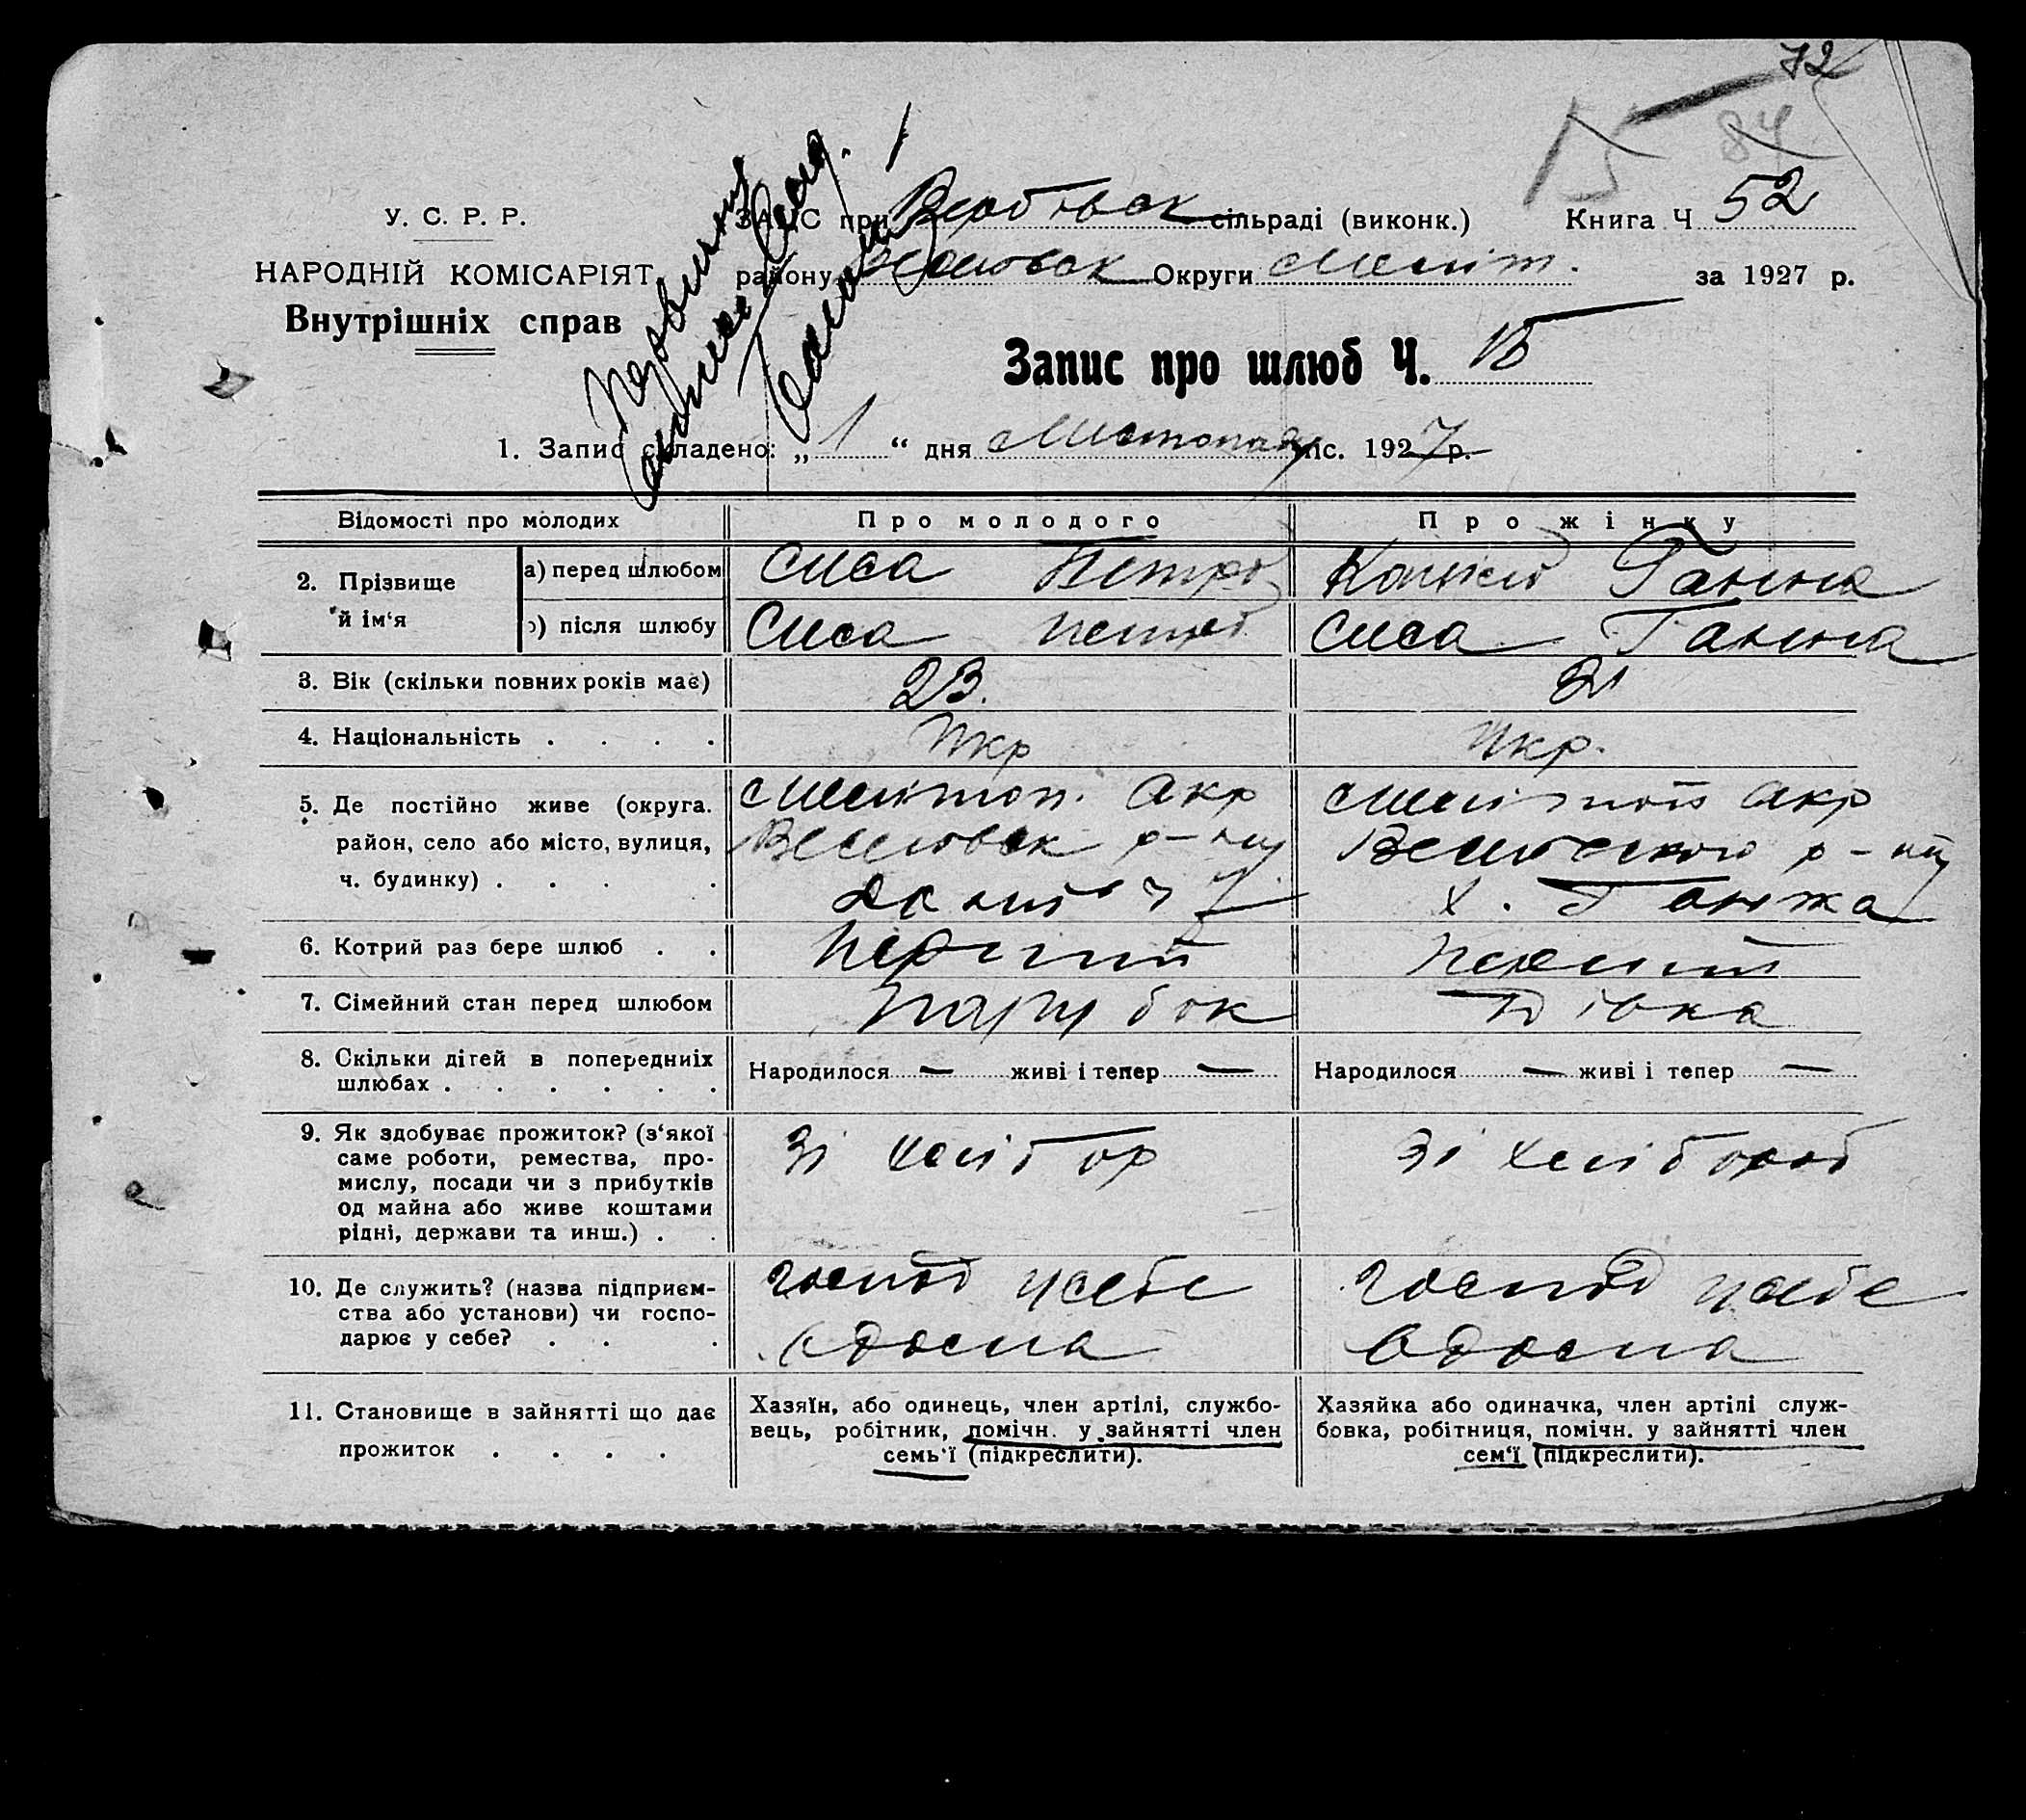 72
15 84
У. С. Р. Р.
НАРОДНІЙ КОМІСАРІЯТ
Внутрішніх справ
ЗАГС при сільраді (виконк.) Книга Ч 52
району Веселовськ Округи Меліт. за 1927 р.
Запис про шлюб Ч. 15
1. Запис складено: „ 1 “ дня Листопад міс. 1927 р.
Відомості про молодих Про молодого Про жінку
2. Прізвище й ім‘я
а) перед шлюбом Сиса Петро Ганна
б) після шлюбу Сиса Петро Сиса Ганна
3. Вік (скільки повних років має) 23. 21
4. Національність . . . . Укр Укр.
5. Де постійно живе (округа. Мелітоп. Акр Мелітоп Акр
район, село або місто, вулиця, Веселовск р-ну Веселовского р-ну
ч. будинку) . . . . х. Ганжа
6. Котрий раз бере шлюб . . Перший Перший
7. Сімейний стан перед шлюбом Парубок Дівка
8. Скільки дітей в попередниіх
шлюбах . . . . . . Народилося — живі і тепер — Народилося — живі і тепер —
9. Як здобуває прожиток? (з‘якої
саме роботи, ремества, про-
мислу, посади чи з прибутків
од майна або живе коштами
рідні, держави та инш.) . .
Зі хлібор Зі хлібороб
10. Де служить? (назва підприєм-
ства або установи) чи госпо-
дарює у себе? . . .
господ усебе господ усебе
11. Становище в зайнятті що дає
прожиток . . . .
Хазяїн, або одинець, член артілі, службо-
вець, робітник, помічн. у зайнятті член
семь‘ї (підкреслити).
Хазяйка або одиначка, член артілі служ-
бовка, робітниця, помічн. у зайнятті член
сем‘ї (підкреслити).